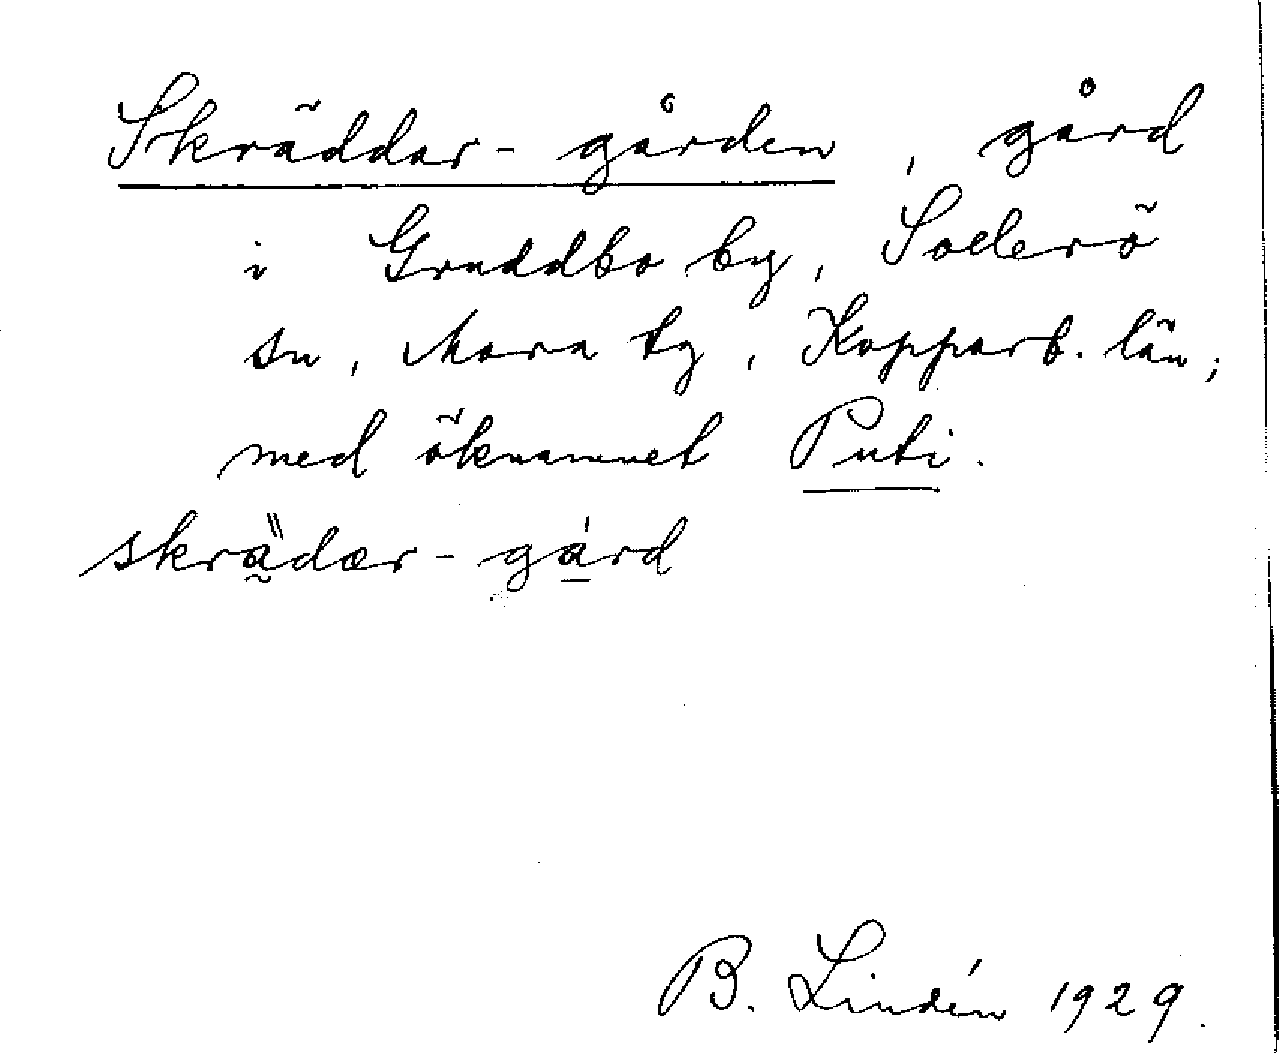 Skräddar-gården, gård
i Gruddbo by, Sollerö
sn, Mora tg, Kopparb. län;
med öknamnet Puti.
skräddær-gård
B. Lindén 1929.